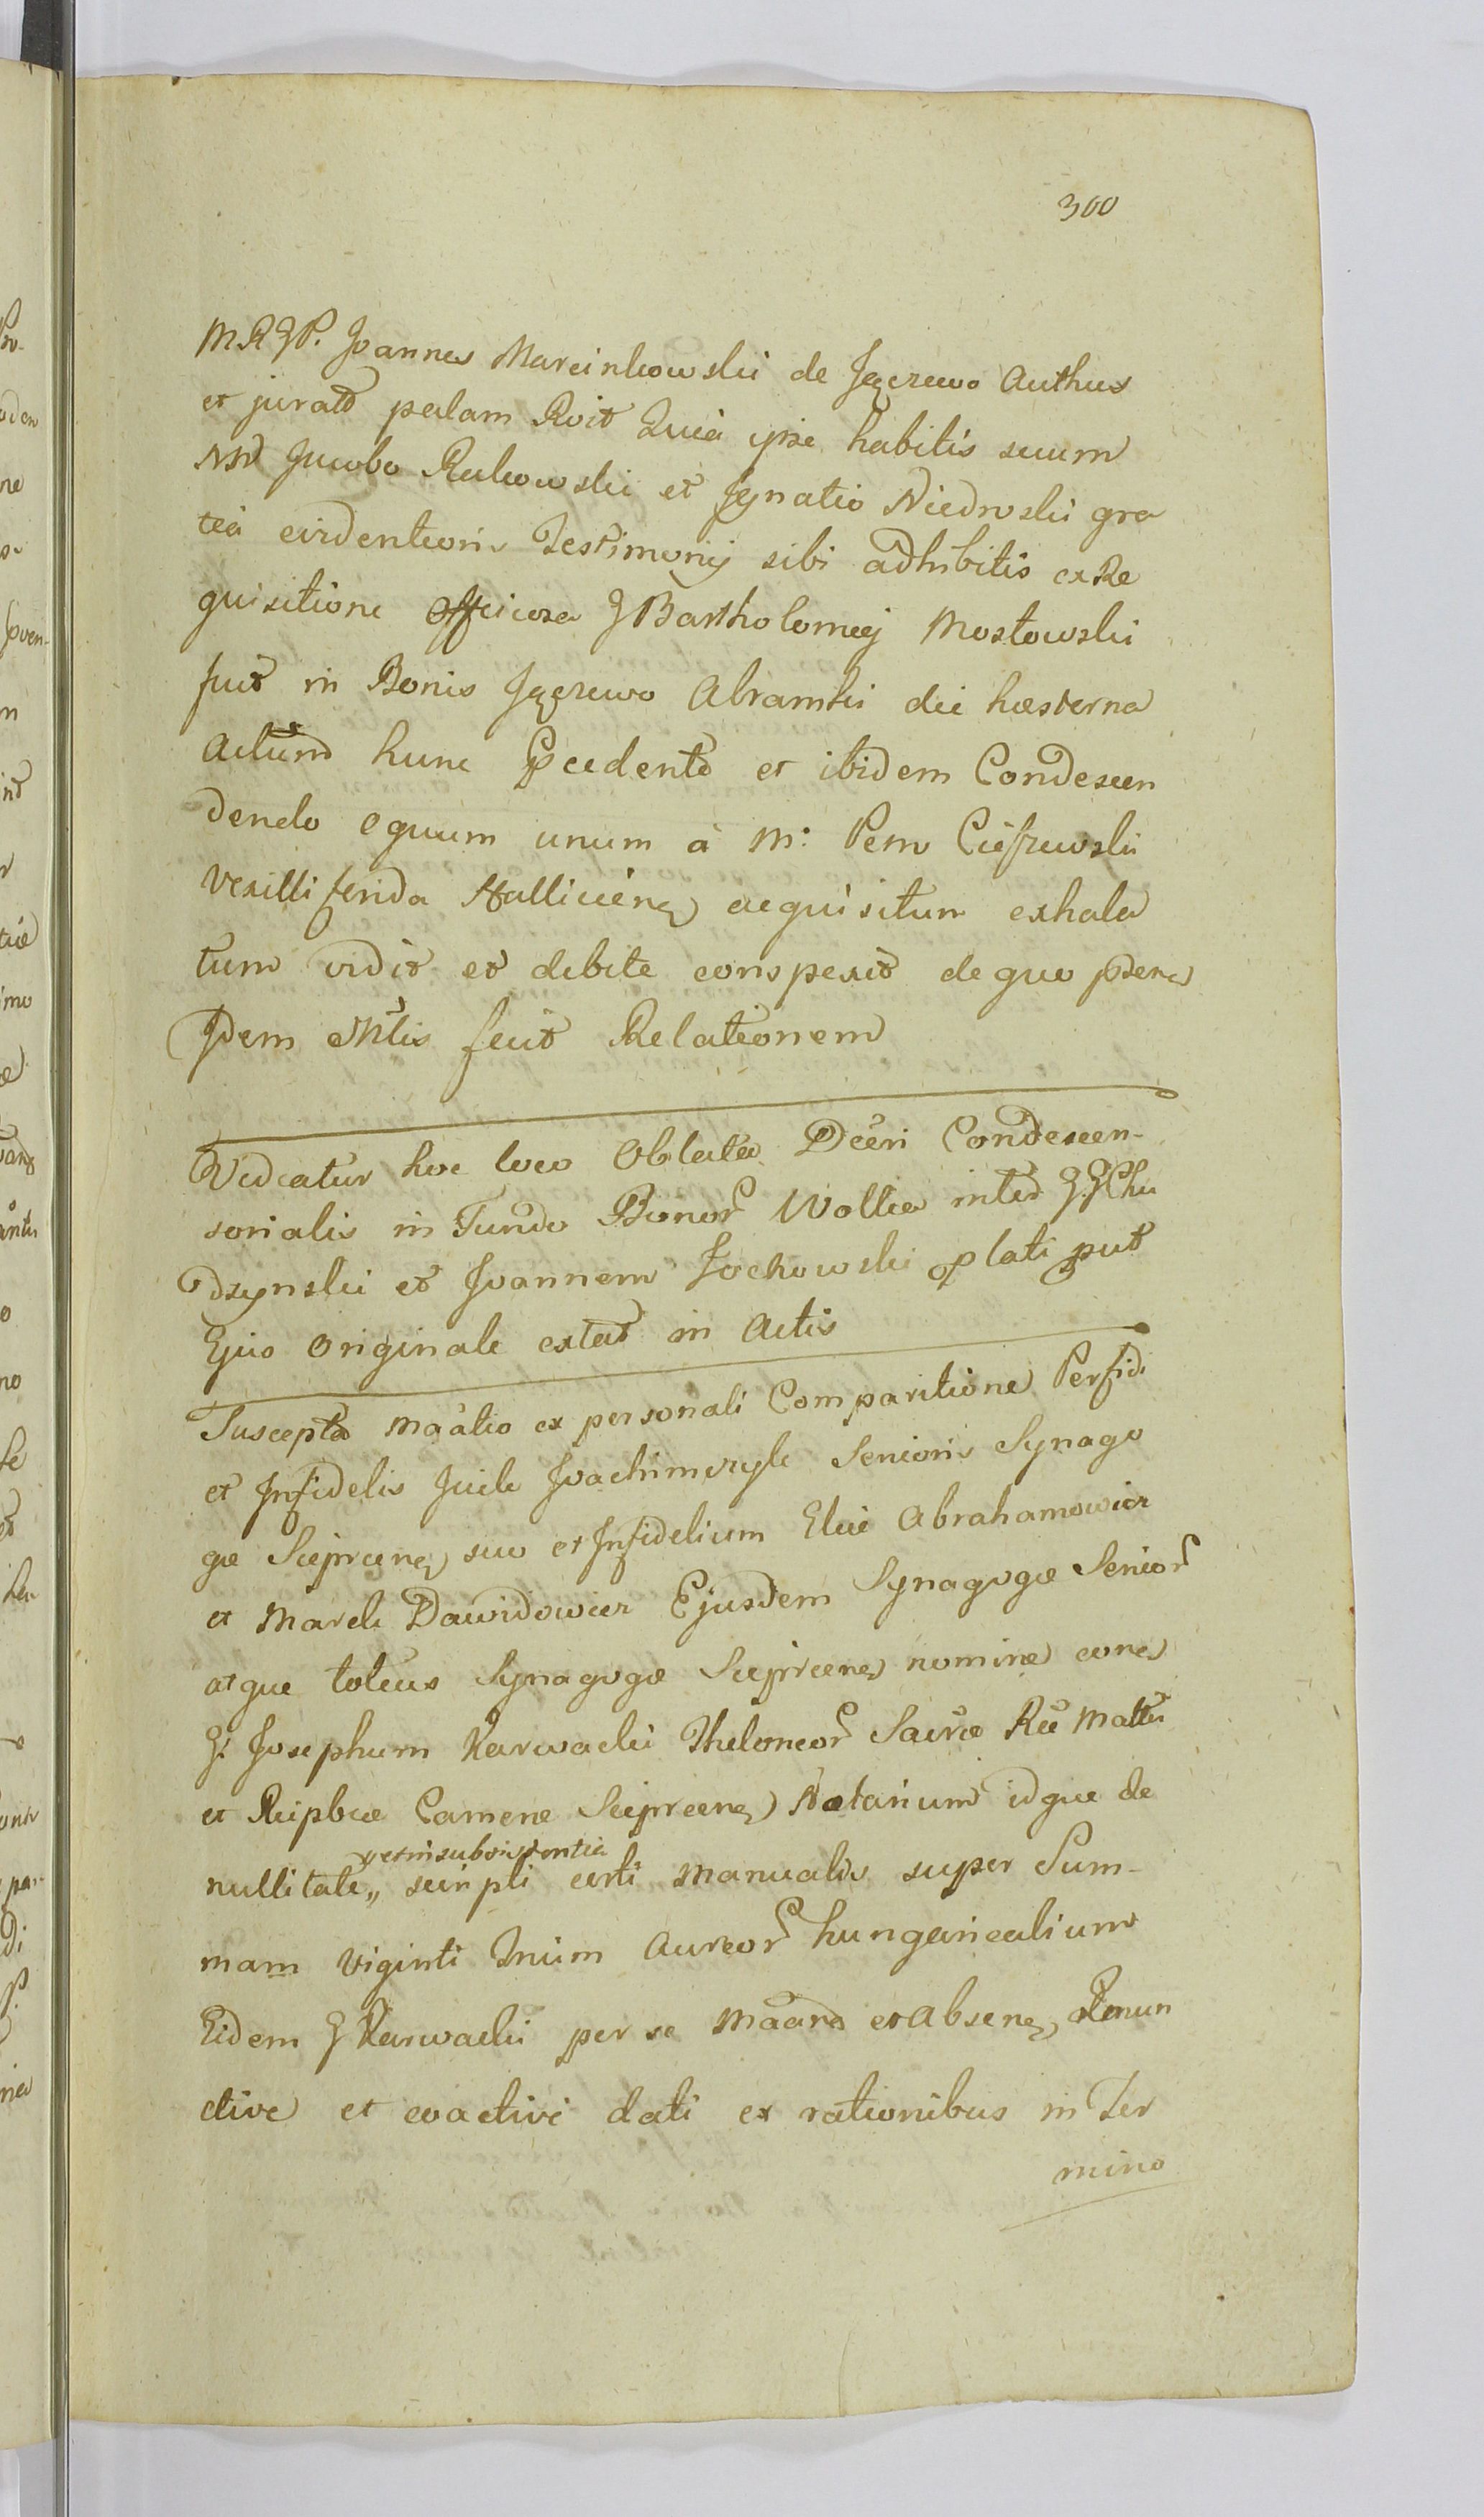 300
MRGP. Joannes Marcinkowski de Jezewo Authus
et juratĩ palam Rvit Quia ipse habitis secum
NN Jacobo Rakowski et Ignatio Niedroski gra
tia evidentioris Testimonij sibi adhibitis ex Re
quisitione Officiosa G Bartholomej Mostowski
fuit in Bonis Jezewo Abramki die hesterna
Actum hunc pcedentĩ et ibidem Condescen
dendo equum unum a M: Petro
Vexilliferida Halliciens acquisitum exhala
tum vidit et debite conspexit de quo psens
Idem Mlis fecit Relationem
Videatur hoc loco Oblata Decri Condescen-
sorialis in Fundo Bonor Wolka inter G.G Chu
dzynski et Joannem Jochowski plati put
Ejus Originale extat in Actis
Suscepta maãtio ex personali Comparitione Perfidi
et Infidelis Joachimczyk Senioris Synago
gæ Sieprcens suo et Infidelium Elie Abrahamowicz
et Marek Dawidowicz Ejusdem Synagogæ Senior
atque totius Synagogæ Sieprcens nomine cons
G: Josephum Karwacki Theloneor Sacræ Rae Mattis
et Reipbcæ Cameræ Sieprcens Notarium idque de
nullitate,, et insubsistentia scripti certi Manualis super Sum-
mam Viginti Trium Aureor hungaricalium
Eidem G Karwacki per se Maand et Absens,
ctive et coactive dati ex rationibus in Ter
mino